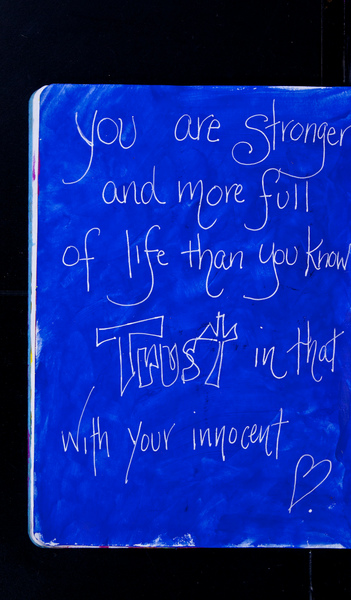 you are stronger
and more full
of life than you know
Trust in that
with your innocent